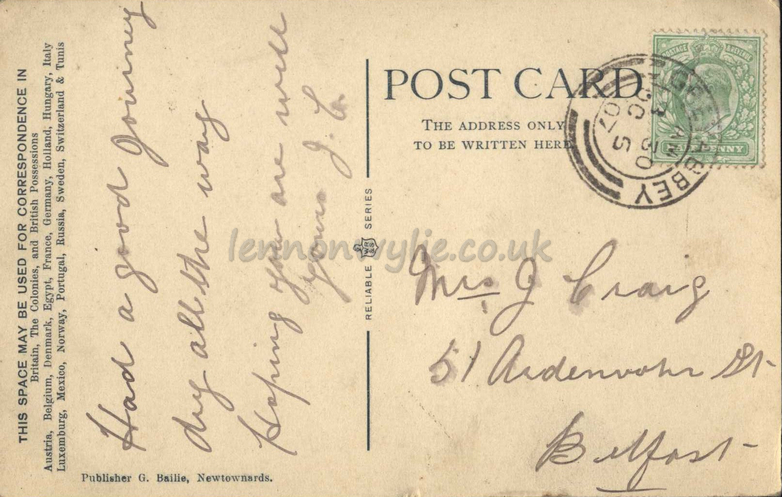 THIS SPACE MAY BE USED FOR CORRESPONDENCE IN
Britain, The Colonies, and British Possessions
Austria, Belgium, Denmark, Egypt, France, Germany, Holland, Hungary, Italy
Luxemburg, Mexico, Norway, Portugal, Russia, Sweden, Switzerland & Tunis
Had a good journey
dry all the way
Hoping you are well
yours J. C.
Publisher G. Bailie, Newtownards.
RELIABLE SERIES
POST CARD.
THE ADDRESS ONLY
TO BE WRITTEN HERE
POSTAGE REVENUE
HALFPENNY
GREY ABBEY
Mrs J Craig
51 Ardenvohr St
Belfast
lennonwylie.co.uk